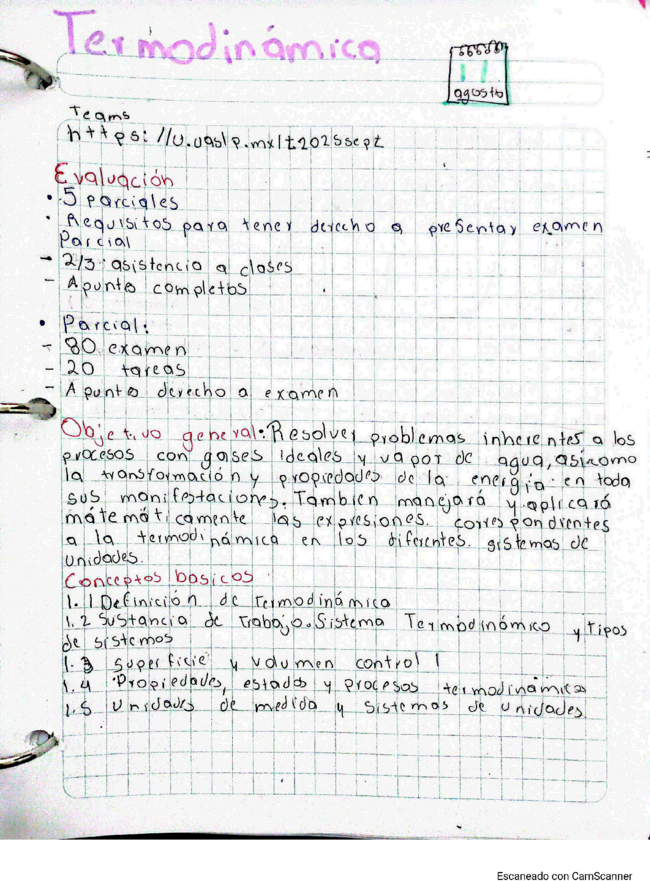 Termodinámica
11
agosto
Teams
https://u.uaslp.mx/t2025sept
Evaluación
• 5 parciales
• Requisitos para tener derecho a presentar examen
Parcial
- 2/3 asistencia a clases
- Apuntes completos
• Parcial:
- 80 examen
- 20 tareas
- Apuntes derecho a examen
Objetivo general: Resolver problemas inherentes a los
procesos con gases ideales y vapor de agua, asicomo
la transformación y propiedades de la energia en toda
sus manifestaciones. Tambien manejará y aplicará
mátemáticamente las expresiones correspondientes
a la termodinámica en los diferentes sistemas de
unidades.
Conceptos basicos
1.1 Definición de Termodinámica
1.2 Sustancia de Trabajo. Sistema Termodinámico y Tipos
de sistemas
1.3 Superficie y volumen control
1.4 Propiedades, estados y procesos termodinámicos
1.5 Unidades de medida y sistemas de unidades
Escaneado con CamScanner